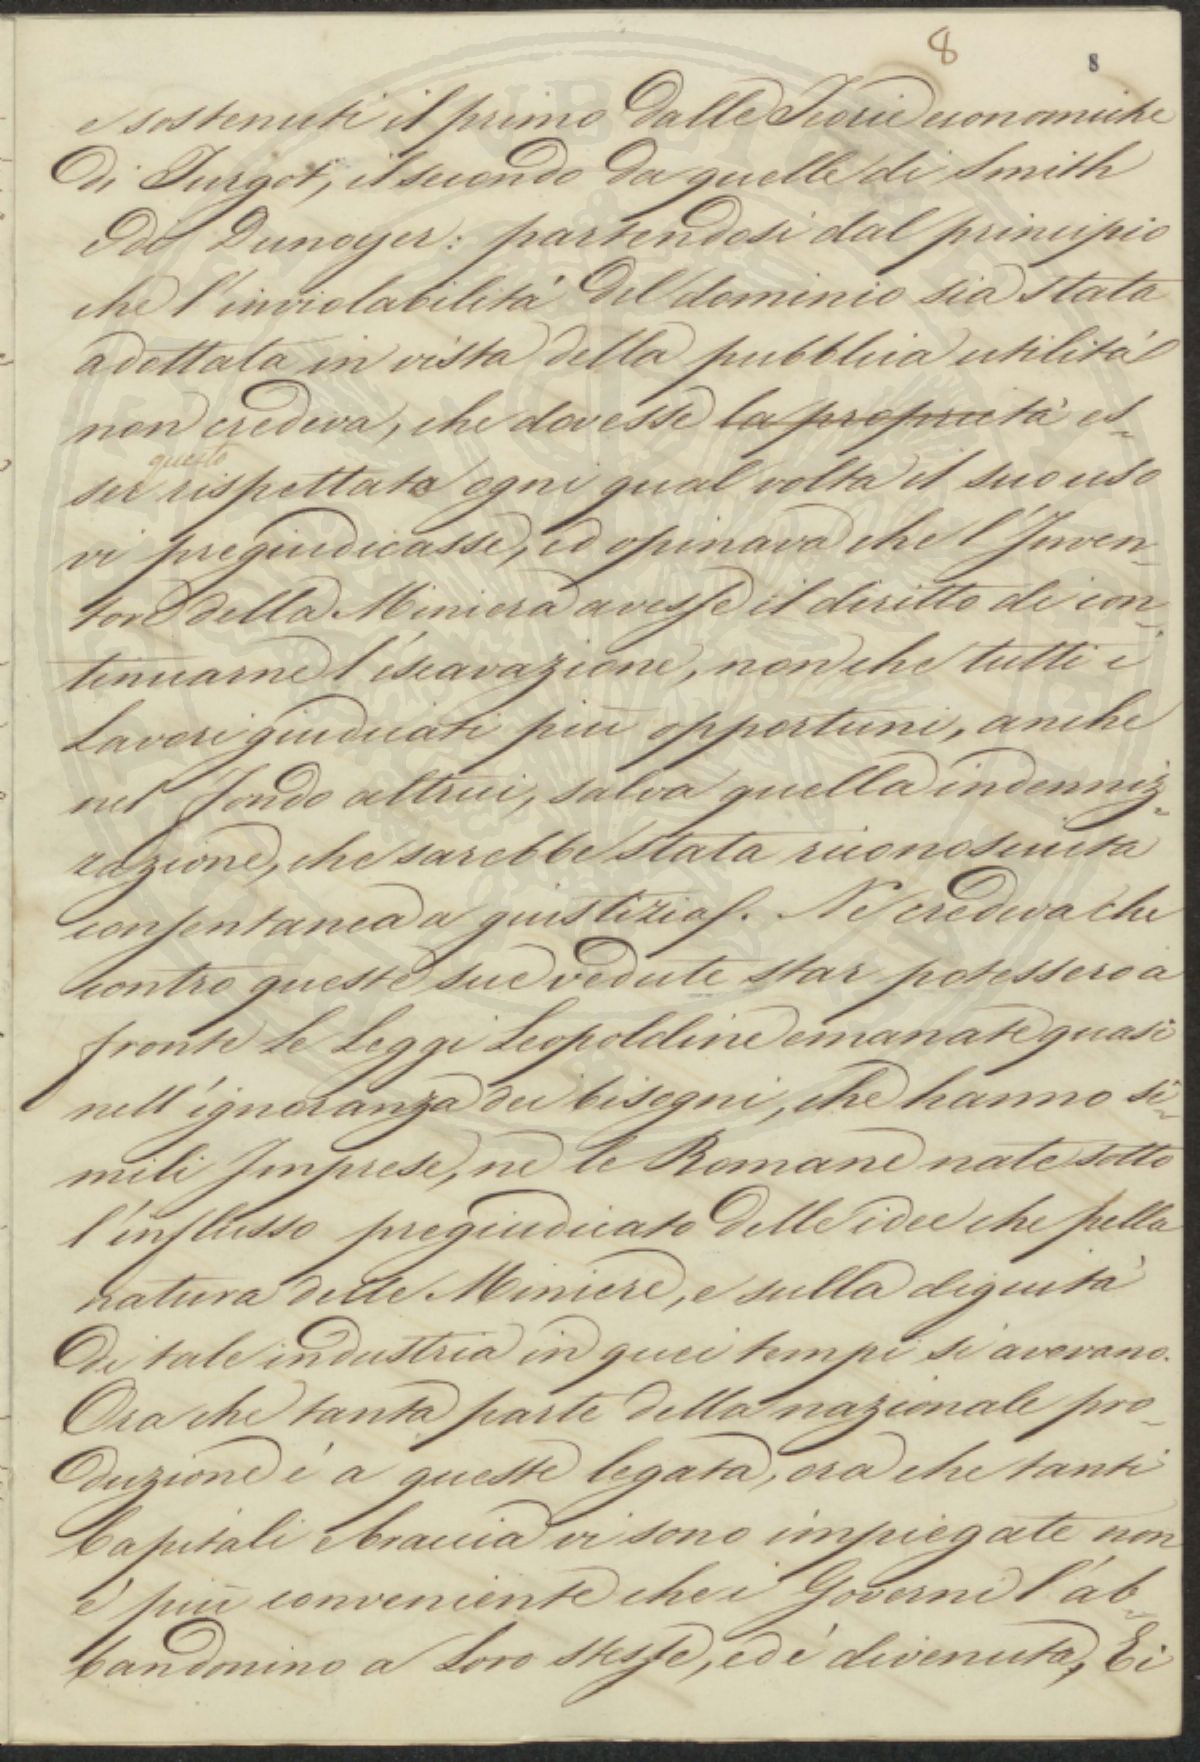 8
8
e sostenuti il primo dalle Teorie economiche
di Turgot, il secondo da quelle di Smith
e di Dunoyer: partendosi dal principio
che l'inviolabilità del dominio sia stata
adottata in vista della pubblica utilità
non credeva, che dovesse la proprietà es-
questo
ser rispettato ogni qual volta il suo uso
vi pregiudicasse, ed opinava che l'Inven-
tore della Miniera avesse il diritto di con-
tinuarne l'escavazione, non che tutti i
Lavori giudicati più opportuni, anche
nel fondo altrui, salva quella indenniz-
zazione, che sarebbe stata riconosciuta
consentanea a giustizia. Nè credeva che
contro queste sue vedute star potessero a
fronte le Leggi Leopoldine emanate quasi
nell'ignoranza dei bisogni, che hanno si-
mili Imprese, nè le Romane nate sotto
l'influsso pregiudicato delle idee che sulla
natura delle Miniere, e sulla dignità
di tale industria in quei tempi si avevano.
Ora che tanta parte della nazionale pro-
duzione è a queste legata, ora che tanti
Capitali e braccia vi sono impiegate non
è più conveniente che i Governi l'ab-
bandonino a loro stesse, ed è divenuta, Ei